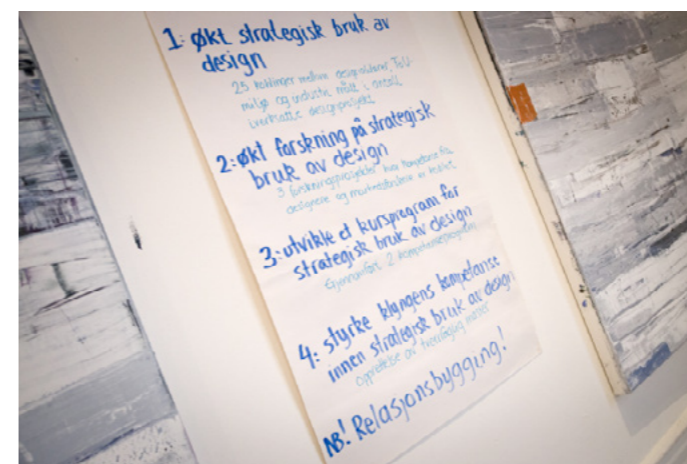 1: økt strategisk bruk av
design
25 koblinger mellom designaktører, FoU-
miljø og industri målt i antall
iverksatte designprosjekt
2: økt forskning på strategisk
bruk av design
3 forskningsprosjekter hvor kompetanse fra
designere og
3: utvikle et kursprogram for
strategisk bruk av design
Gjennomført 2 kompetanseprogram
4: styrke klyngens kompetanse
innen strategisk bruk av design
Opprettelse av tverrfaglig master
NB! Relasjonsbygging!